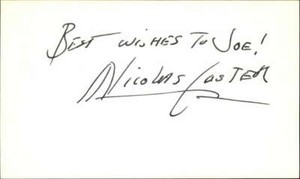 Best wishes to Joe!
Nicolas Coster